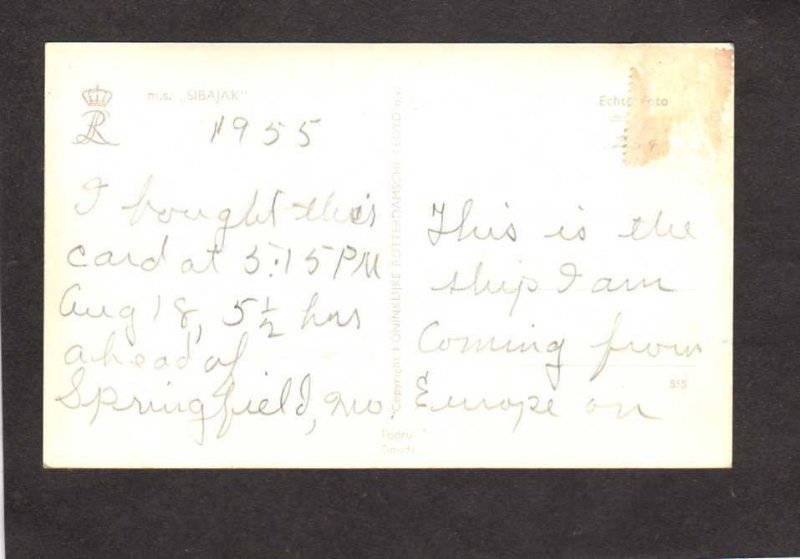 m.s. „SIBAJAK"
1955
I bought this
card at 5:15 PM
Aug 18, 5½ hrs
ahead of
Springfield, Mo.
Copyright KONINKLIJKE ROTTERDAMSCHE LLOYD n.v.
Echte Foto
This is the
ship I am
Coming from
Europe on